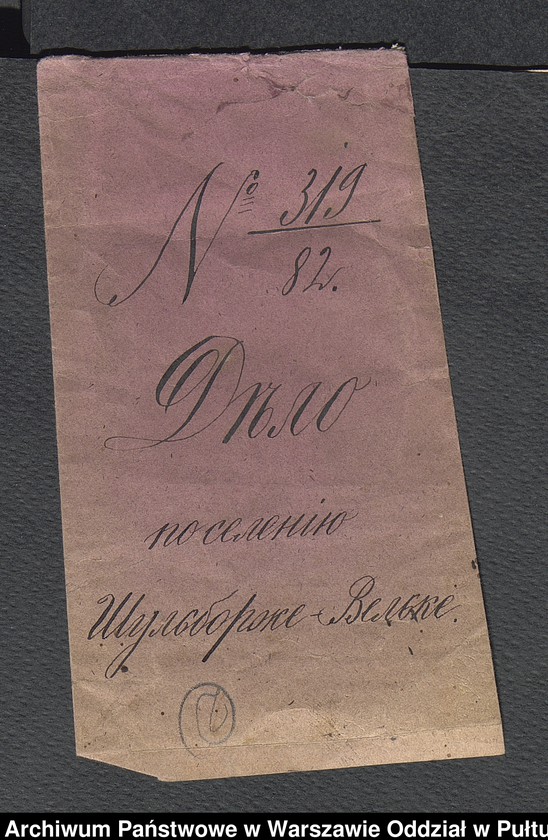 № 319
82.
Дѣло
по селенію
Шульборже-Вельке.
Archiwum Państwowe w Warszawie Oddział w Pułtu